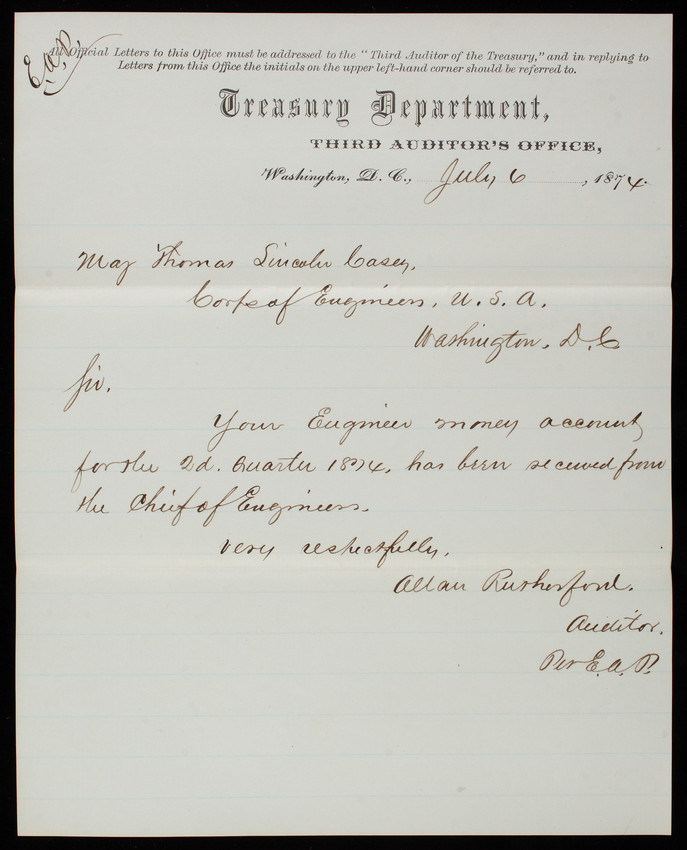 E.A.P.
All Official Letters to this Office must be addressed to the "Third Auditor of the Treasury," and in replying to
Letters from this Office the initials on the upper left-hand corner should be referred to.
Treasury Department,
THIRD AUDITOR'S OFFICE,
Washington, D. C., July 6, 1874.
Maj Thomas Lincoln Casey,
Corps of Engineers, U. S. A.
Washington, D.C
Sir,
Your Engineer money account,
for the 2d. Quarter 1874, has been received from
the Chief of Engineers.
Very respectfully,
Allan Rutherford.
Auditor.
Per E. A. P.